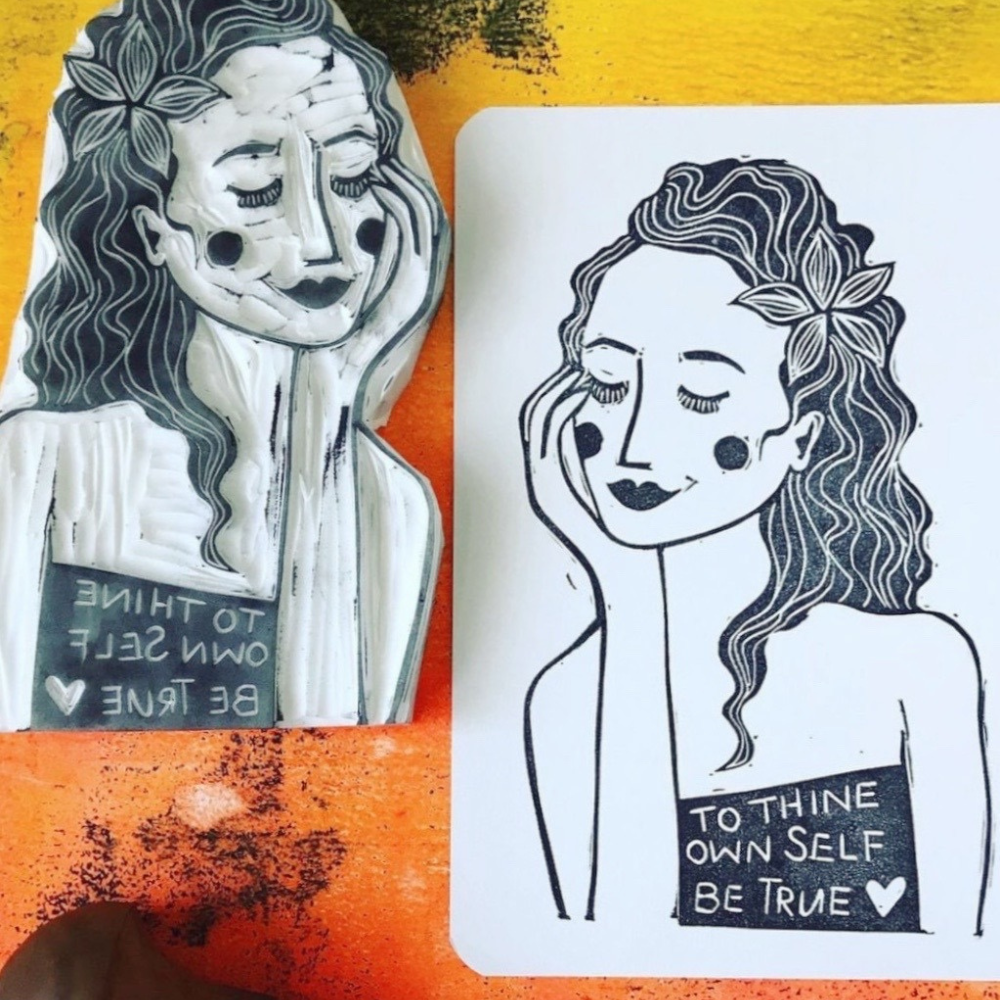 TO THINE
OWN SELF
BE TRUE
TO THINE
OWN SELF
BE TRUE